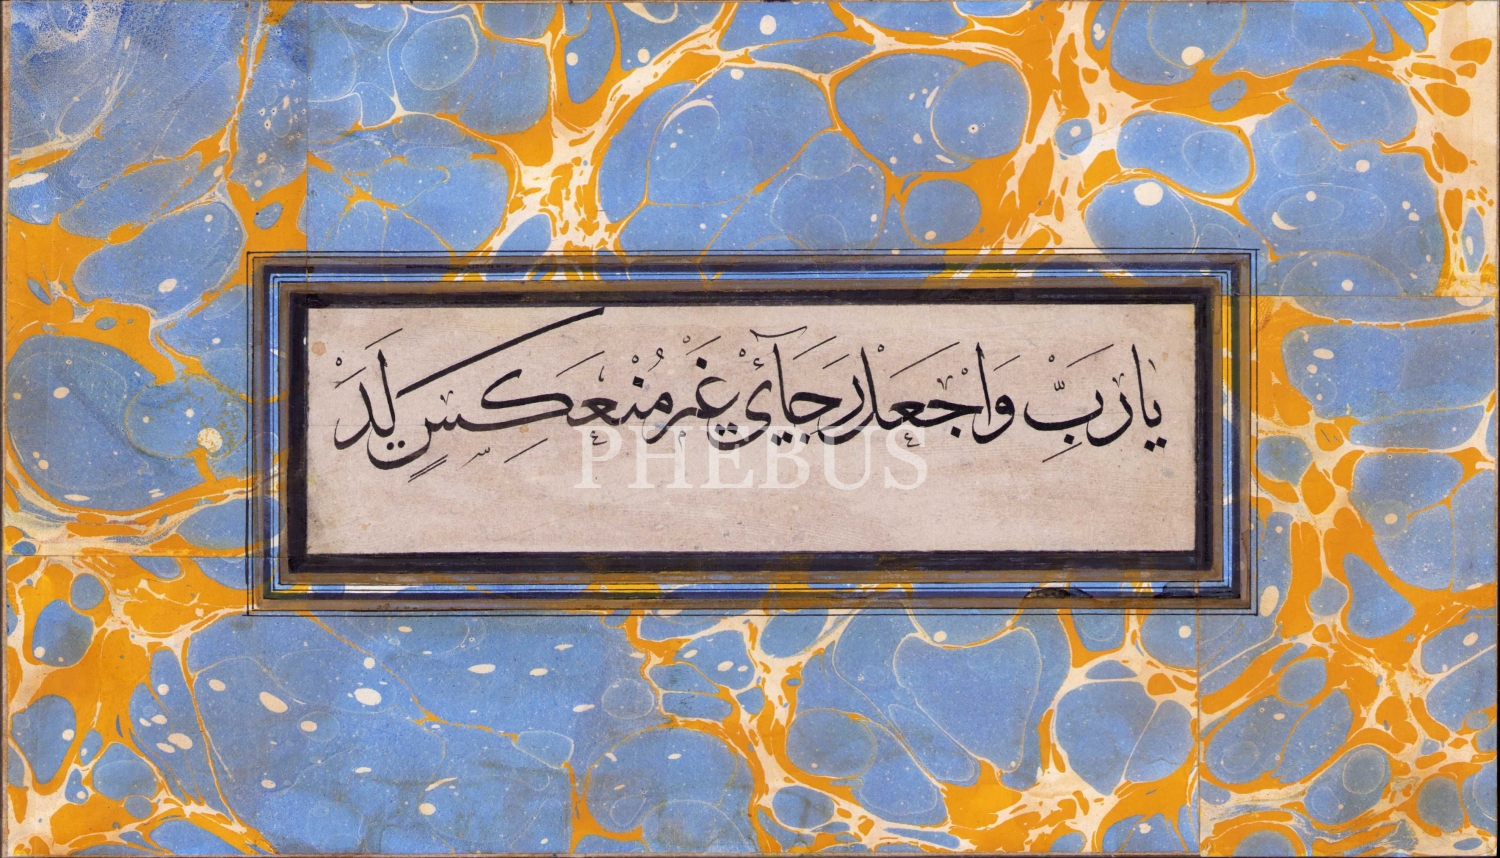 يَا رَبِّ وَاجْعَلْ رَجَائِي غَيْرَ مُنْعَكِسٍ لَدَ
PHEBUS